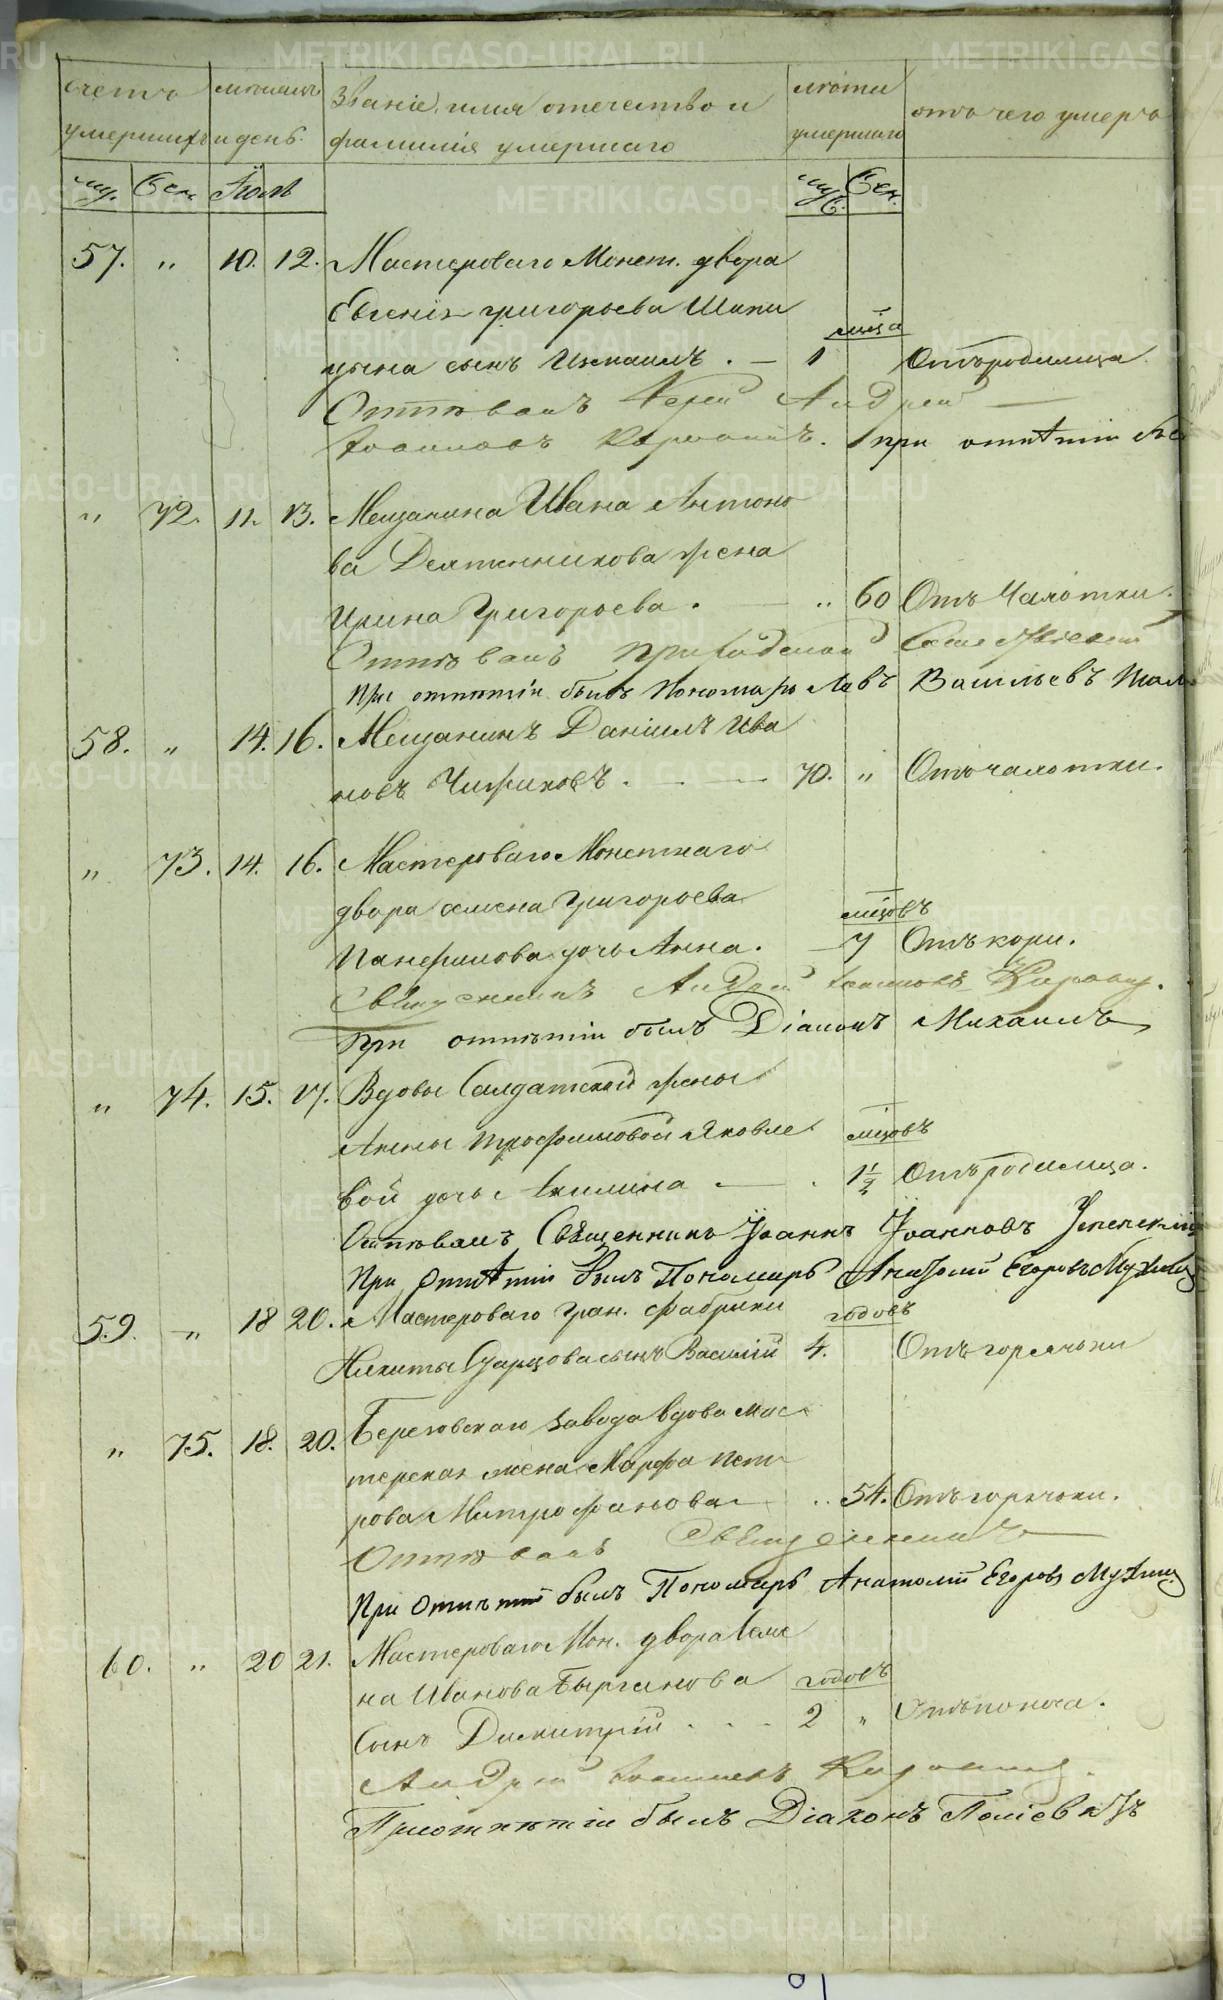 счетъ умершихъ мѣсяцъ и день Званіе, имя отечество и фамилія умершаго лѣта умершаго отъ чего умеръ
муж. Жен. Іюль муж. Жен.
57. " 10. 12. Мастероваго Монет. двора
Евгенія Григорьева Шипи
цына сынъ Измаилъ. — 1 мѣца Отъ родимца
Отпѣвалъ Іерей Андрей
Іоанновъ при отпѣтіи
" 72. 11. 13. Мещанина Ивана Антоно
ва жена
Ирина Григорьева. — " 60 Отъ Чахотки.
Отпѣвалъ
При отпѣтіи былъ Пономарь Левъ Васильевъ
58. " 14. 16. Мещанинъ Даніилъ Ива
новъ Чижиковъ. — 70. " Отъ чахотки.
" 73. 14. 16. Мастероваго Монетнаго
двора Семена Григорьева
Панфилова дочь Анна. — 7 мѣцовъ Отъ кори.
Священникъ Андрей Іоанновъ
При отпѣтіи былъ Діаконъ Михаилъ
" 74. 15. 17. Вдовы Салдатской жены
Анны Трофимовой Яковле
вой дочь Акилина — 1½ мѣцовъ Отъ родимца.
Отпѣвалъ Священникъ Іоаннъ Іоанновъ Успенскій
При Отпѣтіи былъ Пономарь Анатолій Егоровъ Мухинъ
59. " 18 20. Мастероваго Гран. фабрики годовъ
Никиты сынъ Василій 4. Отъ горячьки
" 75. 18. 20. Березовскаго завода вдова мас
терская жена Марфа Пет
рова Митрофанова — " 54. Отъ горячьки.
Отпѣвалъ Священникъ
При Отпѣтіи былъ Пономарь Анатолій Егоровъ Мухинъ
60. " 20 21. Мастероваго Мон. двора Семе
на Иванова годовъ
Сынъ Димитрій . . . 2 " Отъ поноса.
Андрей Іоанновъ
При отпѣтіи былъ Діаконъ
METRIKI.GASO-URAL.RU